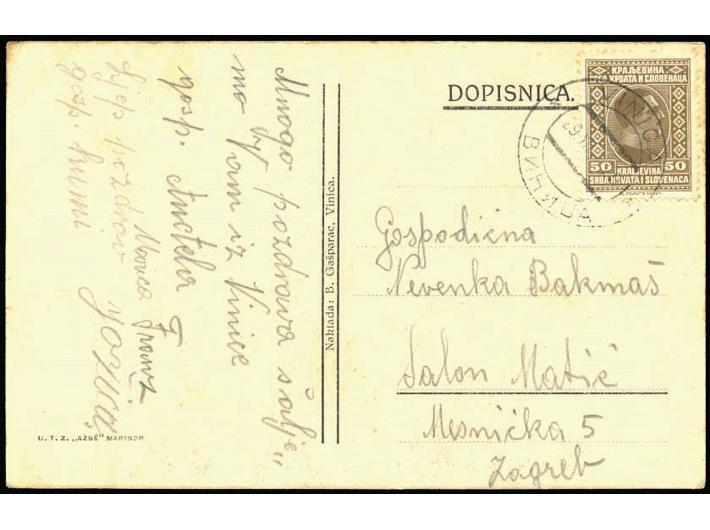 Mnogo pozdrava šalje
mo Vam iz Vinice
gosp. 
Marica Franz
Ljep pozdrav Jozica
gosp. kumi
U. T. Z. „AŽBÉ" MARIBOR
Naklada: B. Gašparac, Vinica.
DOPISNICA.
КРАЉЕВИНА
СРБА ХРВАТА И СЛОВЕНАЦА
50 50
KRALJEVINA
SRBA HRVATA I SLOVENACA
VINICA
ВИНИЦА
Gospodična
Nevenka Bakmaš
Salon Matić
Mesnička 5
Zagreb